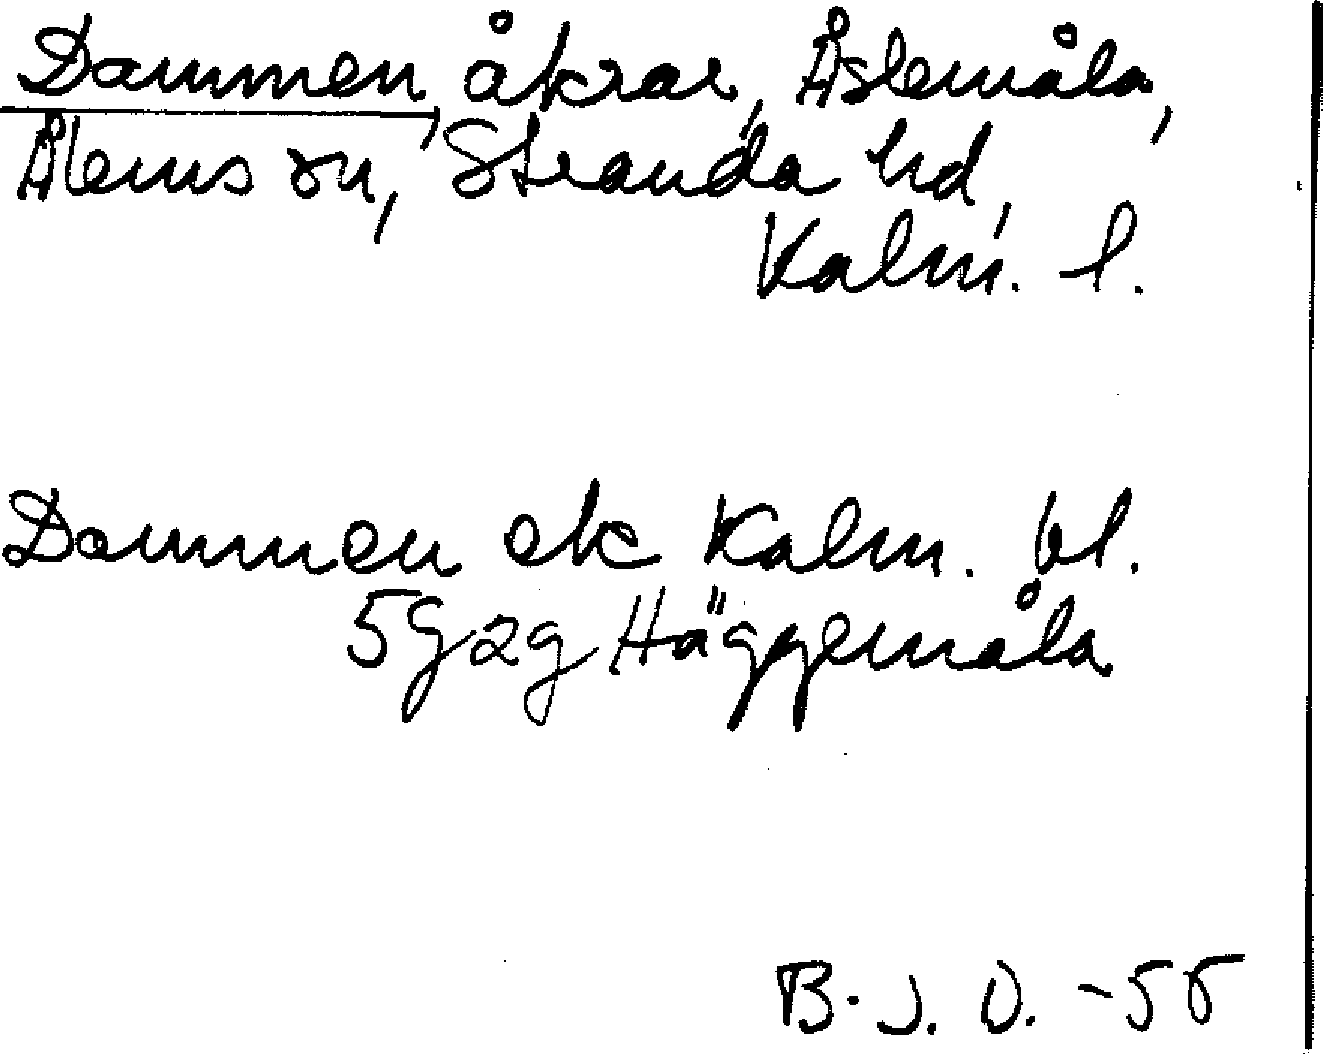 Dammen, åkrar, Åslemåla,
Ålems sn, Stranda hd,
Kalm. l.
Dammen ek Kalm. bl.
5g2g Häggemåla
B. J. O. -55